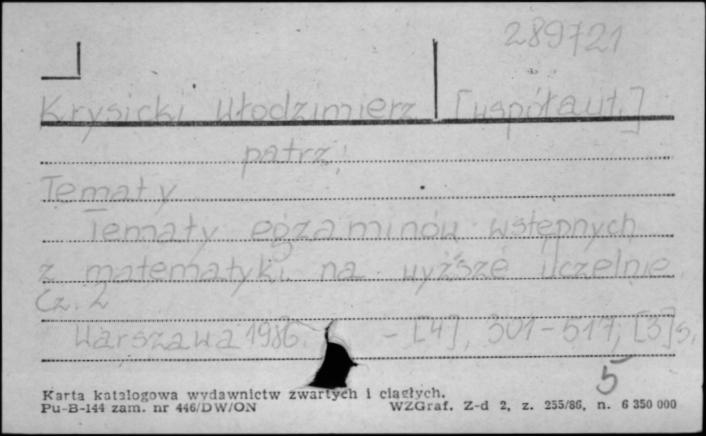 289721
Krysicki Włodzimierz [współaut.]
patrz:
Tematy
Tematy egzaminów wstępnych
z matematyki na wyższe uczelnie.
Cz. 2
Warszawa 1986. - [4], 301-517, [3]s.
5
Karta katalogowa wydawnictw zwartych i ciągłych.
Pu-B-144 zam. nr 446/DW/ON WZGraf. Z-d 2, z. 255/86, n. 6 350 000